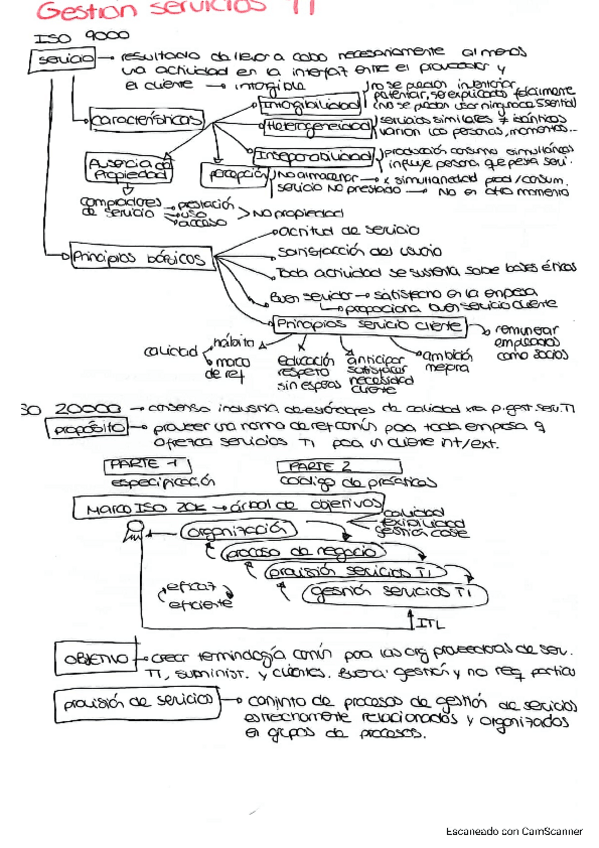 Gestión servicios TI
ISO 9000
servicio → resultado de llevar a cabo necesariamente al menos
una actividad en la interfaz entre el proveedor y
el cliente → intangible
características
Intangibilidad → no se pueden inventariar,
patentar, ser explicados fácilmente
Heterogeneidad → servicios similares ≠ idénticos
varían las personas, momentos...
Inseparabilidad → producción consumo simultáneos
influye persona que presta serv.
Ausencia de
Propiedad
percepción → No almacenar → x simultaneidad prod/consum.
servicio no prestado → No en otro momento
compradores
de servicio → prestación
→ uso
→ acceso
> No propiedad
Principios básicos
actitud de servicio
satisfacción del usuario
Toda actividad se sustenta sobre bases éticas
Buen servidor → satisfecho en la empresa
→ proporciona buen servicio cliente
Principios servicio cliente
calidad
hábito
marco
de ref
educación
respeto
sin esperas
anticipar
satisfacer
necesidad
cliente
ambición
mejora
remunerar
empleados
como socios
SO 20000 → consenso industria de estándares de calidad xra p. gest. serv. TI
propósito → proveer una norma de ref común para toda empresa q
ofrezca servicios TI para un cliente int/ext.
PARTE 1
especificación
PARTE 2
código de prácticas
Marco ISO 20K → árbol de objetivos
organización
calidad
flexibilidad
gestión coste
proceso de negocio
provisión servicios TI
gestión servicios TI
eficaz
eficiente
ITL
OBJETIVO → crear terminología común para las org proveedoras de serv.
TI, suminist. y clientes. gestión y no req
provisión de servicios → conjunto de procesos de gestión de servicios
estrechamente relacionados y organizados
en grupos de procesos.
Escaneado con CamScanner